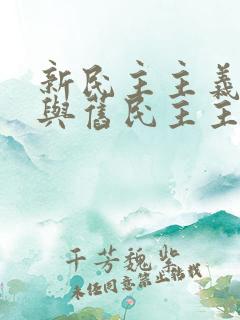 新民主主義
與舊民主主
千芳魏紫
未经同意禁止转载